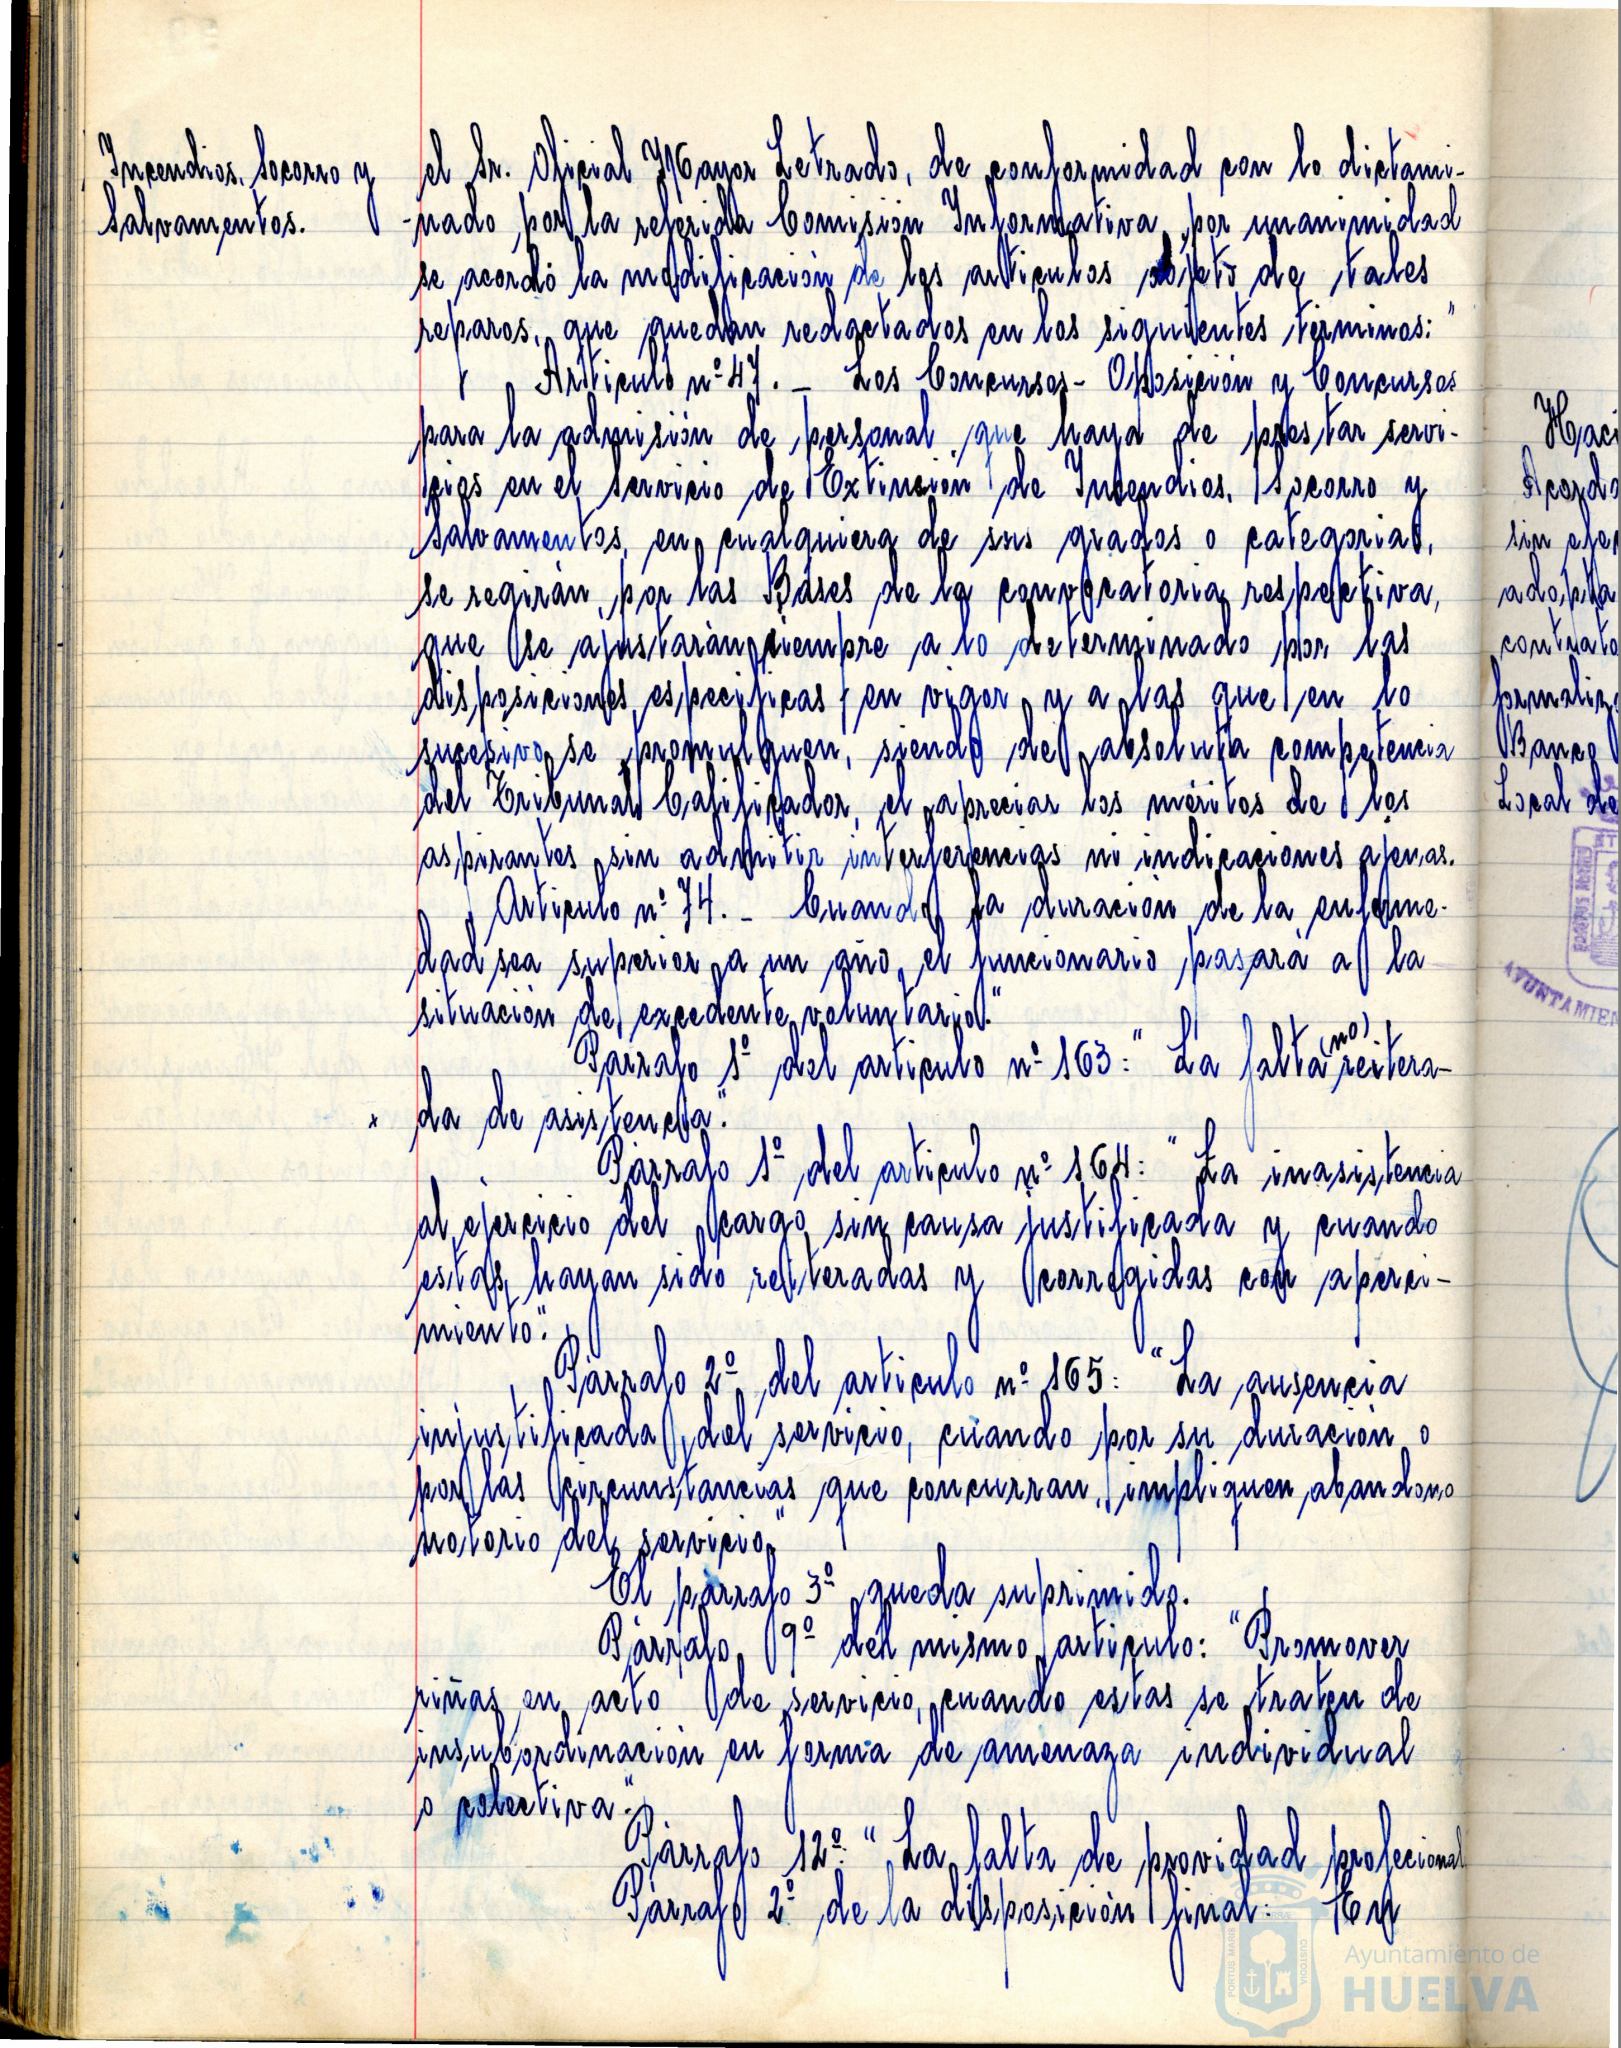 Incendios, Socorro y
Salvamentos.
el Sr. Oficial Mayor Letrado, de conformidad con lo dictami-
-nado por la referida Comisión Informativa, por unanimidad
se acordó la modificación de los artículos objeto de tales
reparos, que quedan redactados en los siguientes términos: "
Artículo nº 47. - Los Concursos-Oposición y Concursos
para la admisión de personal que haya de prestar servi-
cios en el Servicio de Extinción de Incendios, Socorro y
Salvamentos, en cualquiera de sus grados o categorias,
se regirán por las Bases de la convocatoria respectiva,
que se ajustarán siempre a lo determinado por las
disposiciones específicas en vigor y a las que en lo
sucesivo se promulguen, siendo de absoluta competencia
del Tribunal Calificador, el apreciar los méritos de los
aspirantes sin admitir interferencias ni indicaciones ajenas.
Artículo nº 74. - Cuando la duración de la enferme-
dad sea superior a un año, el funcionario pasará a la
situación de excedente voluntario."
Párrafo 1º del artículo nº 163: "La falta (no) reitera-
x da de asistencia".
Párrafo 1º del artículo nº 164: "La inasistencia
al ejercicio del cargo sin causa justificada y cuando
estas hayan sido reiteradas y corregidas con aperci-
miento".
Párrafo 2º del artículo nº 165: "La ausencia
injustificada del servicio, cuando por su duración o
por las circunstancias que concurran, impliquen abandono
notorio del servicio."
El párrafo 3º queda suprimido.
Párrafo 9º del mismo artículo: "Promover
riñas en acto de servicio, cuando estas se traten de
insubordinación en forma de amenaza individual
o colectiva".
Párrafo 12º: "La falta de providad profecional
Párrafo 2º de la disposición final: En
Haci
Acordo
sin efe
adopta
contrato
formaliz
Banco
Local de
AYUNTAMIEN
PORTUS MARIS
CUSTODIA
Ayuntamiento de
HUELVA